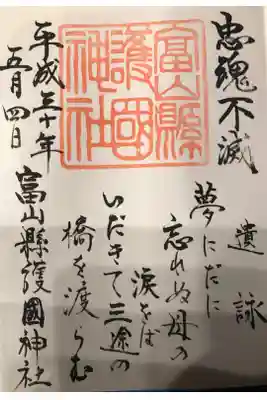 忠魂不滅
富山縣
護國
神社
遺詠
夢にだに
忘れぬ母の
涙をば
いだきて三途の
橋を渡らむ
平成三十年
五月四日
富山縣護國神社